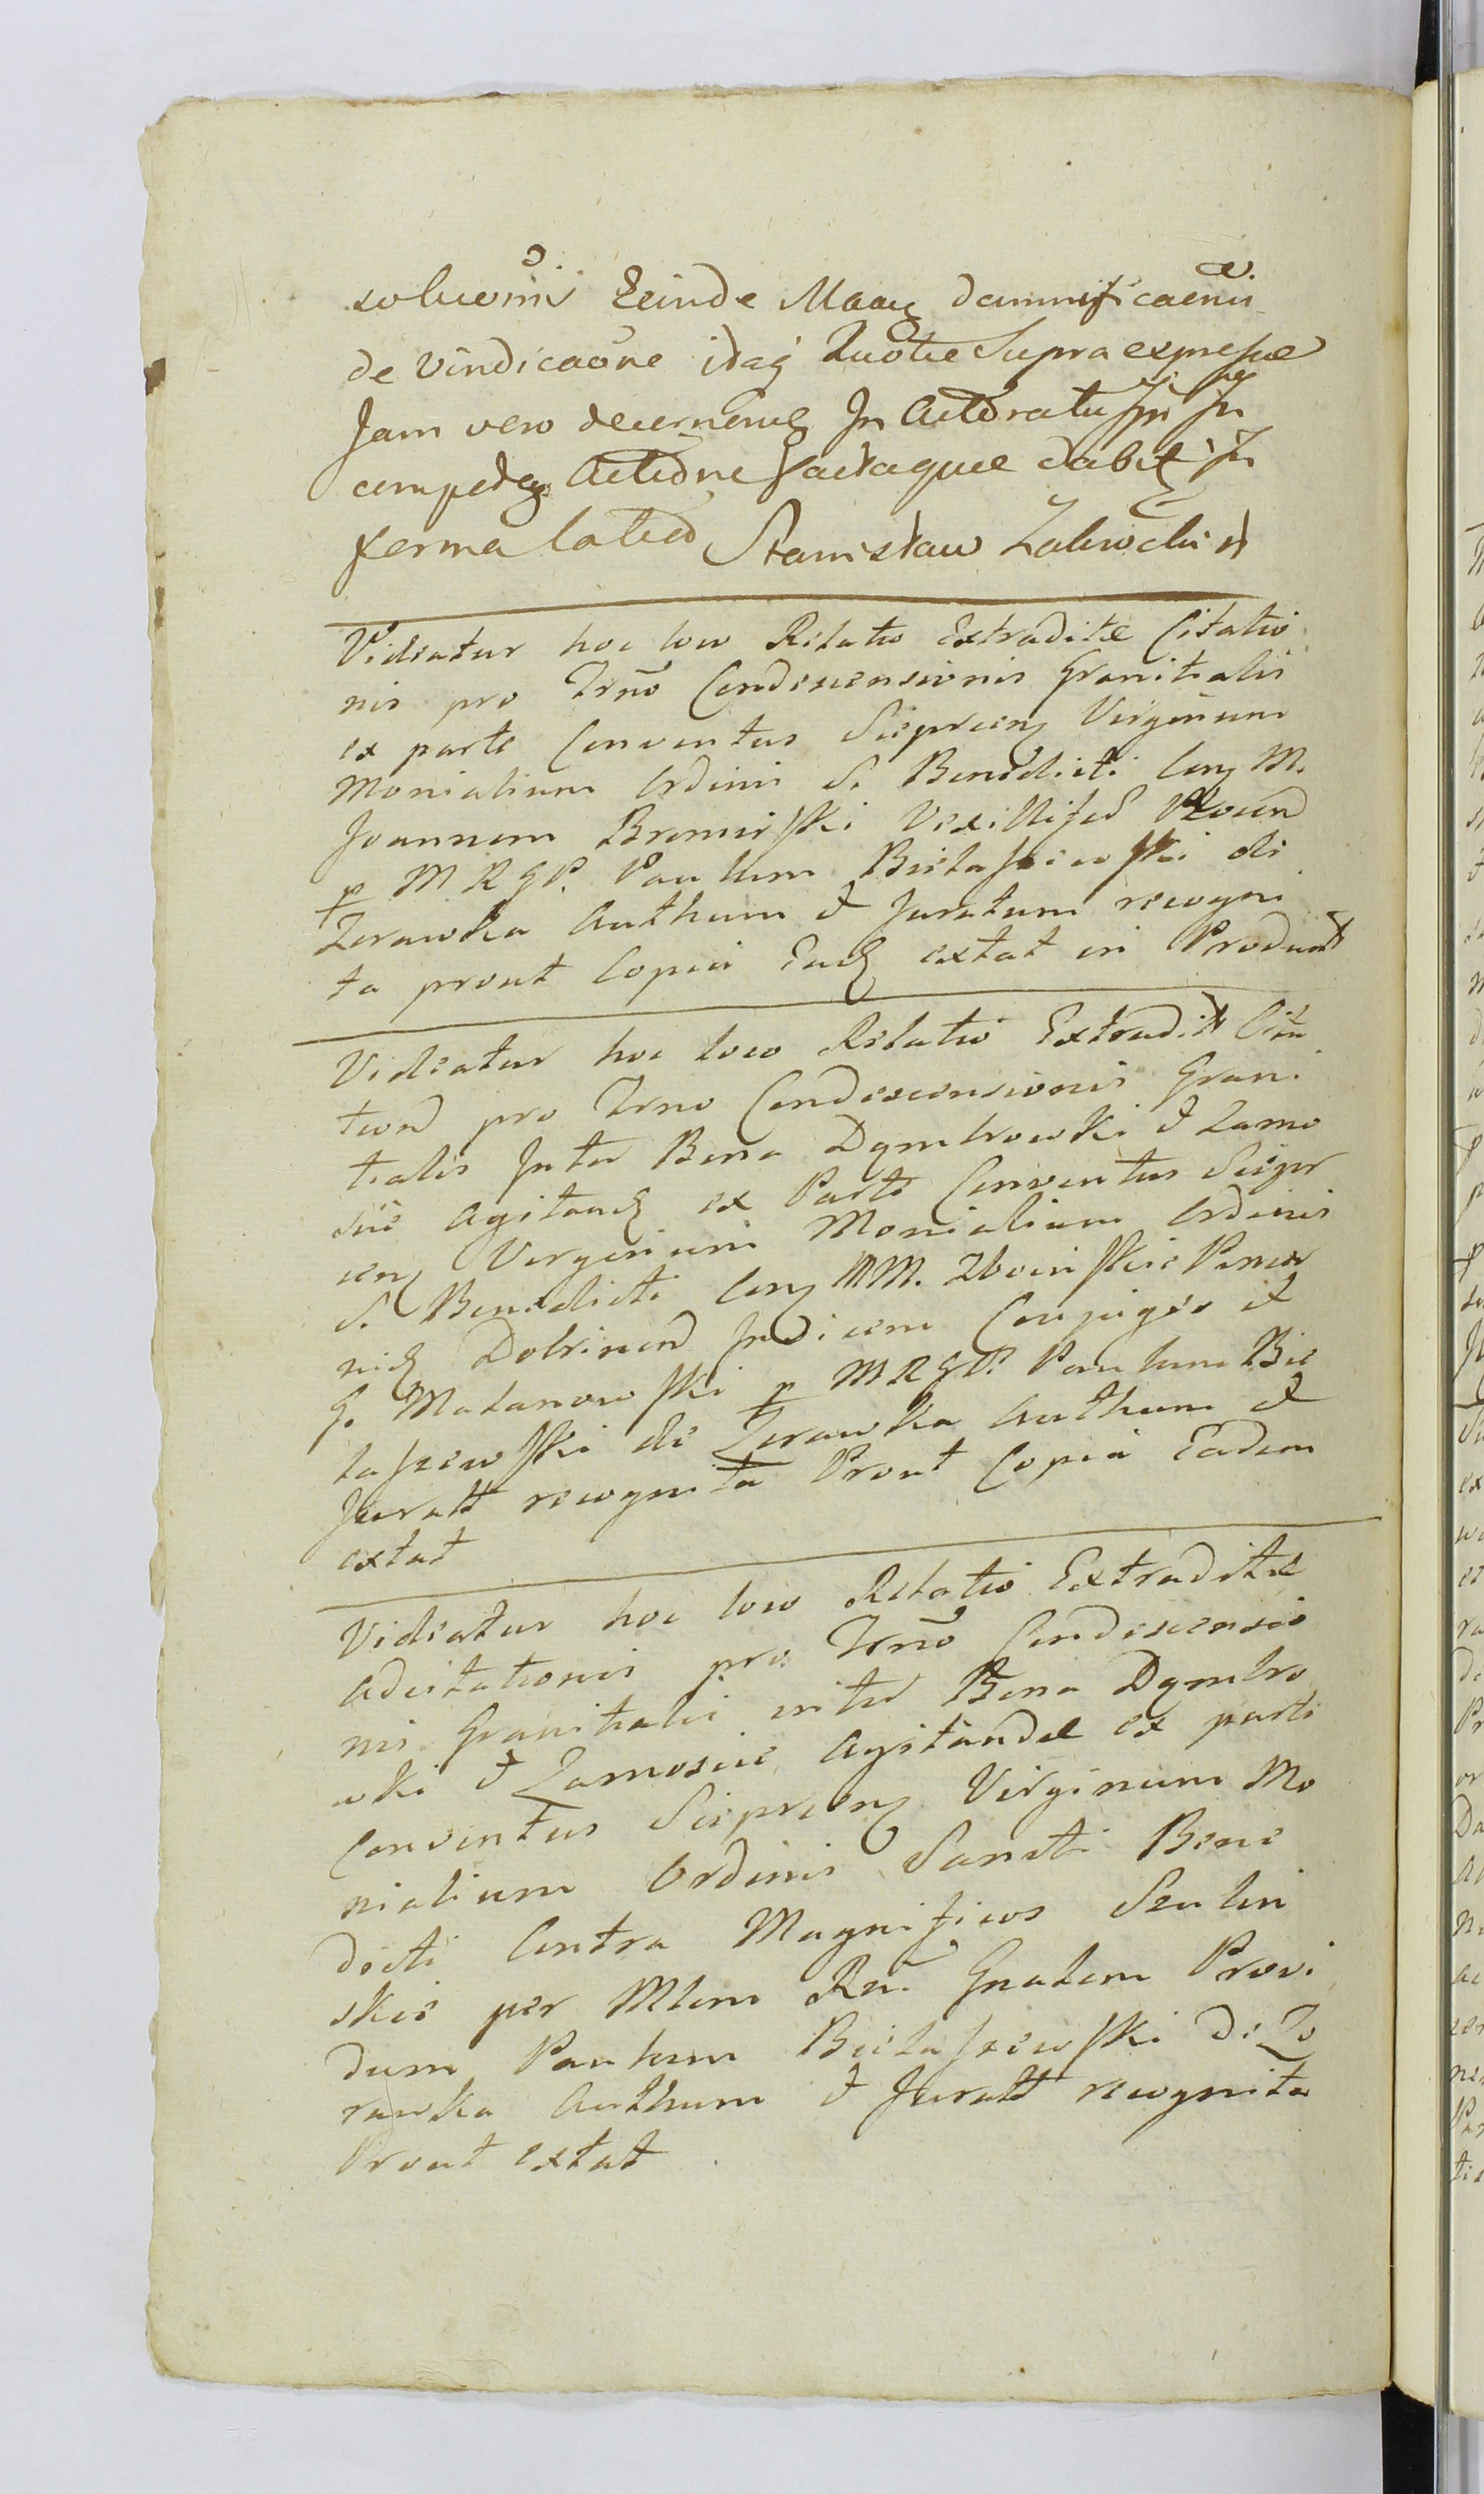 solucionis Exinde damnificaeñu
de Vindicaõne itaq Quotae Supra expressae
Jam vero decernen In Actoratu
competen Actione factaque dabit In
forma Stanisław
Videatur hoc loco Relatio Extraditæ Citatio
nis pro Trño Condescensionis Granitialis
ex parte Conventus Sieprcen Virginum
Monialium Ordinis S. Benedicti Con M.
Joannem Bromirski Vexilliferũ Plocen
p MRGP. Paulum Bielaszewski de
Zurawka Authum et Juratum recogni
ta prout Copia Ead extat in Product
Videatur hoc loco Relatio Extradit Cita
tion pro Trno Condescensionis Grani
tialis Inter Bona Dymbrowski et Zamo
scie Agitand ex Parte Conventus Siepr
cen Virginum Monialium Ordinis
S. Benedicti Con MM. Zboinskie
Dobrinen Judicem Conjuges et
G. Matanowski p MRGP. Paulum Bie
laszewski de Zurawka Authum et
Juratt recognita Prout Copia Eadem
extat
Videatur hoc loco Relatio Extraditæ
Adcitationis pro Trño Condescensio
nis Granitialis inter Bona Dymbro
wski et Zamoscie Agitandæ ex parte
Conventus Sieprcen Virginum Mo
nialium Ordinis Sancti Bene
dicti Contra Magnificos
skie per Mlem Rñi Gnalem Provi
dum Paulum Bielaszewski de Zu
rawka Authum et Juratt recognita
Prout extat